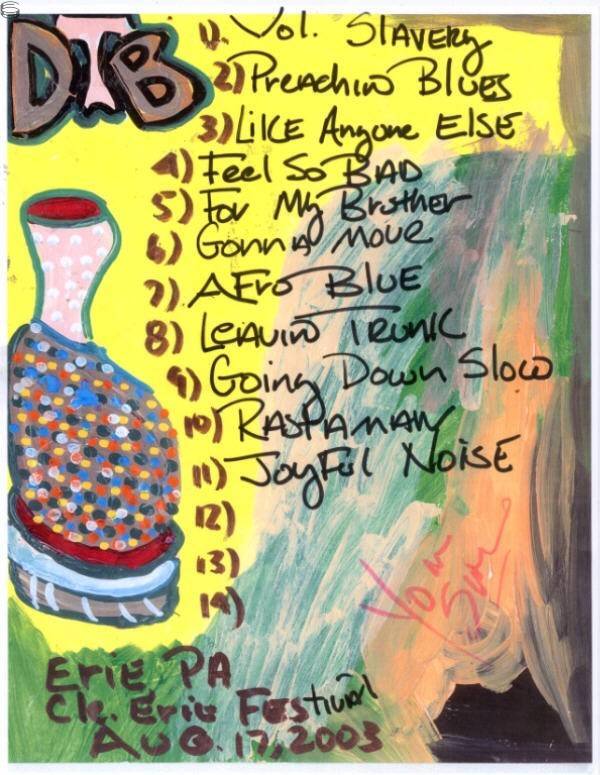 DTB
1). Vol. SLAVERY
2) PreAchin BLUES
3) LIKE Anyone ELSE
4) Feel So BAD
5) For My Brother
6) Gonna Move
7) AFro BLUE
8) Leavin TRUNK
9) Going Down Slow
10) RASTAMAN
11) JoyFul NOISE
12)
13)
14)
Erie PA
Ck. Erie Festival
AUG. 17, 2003